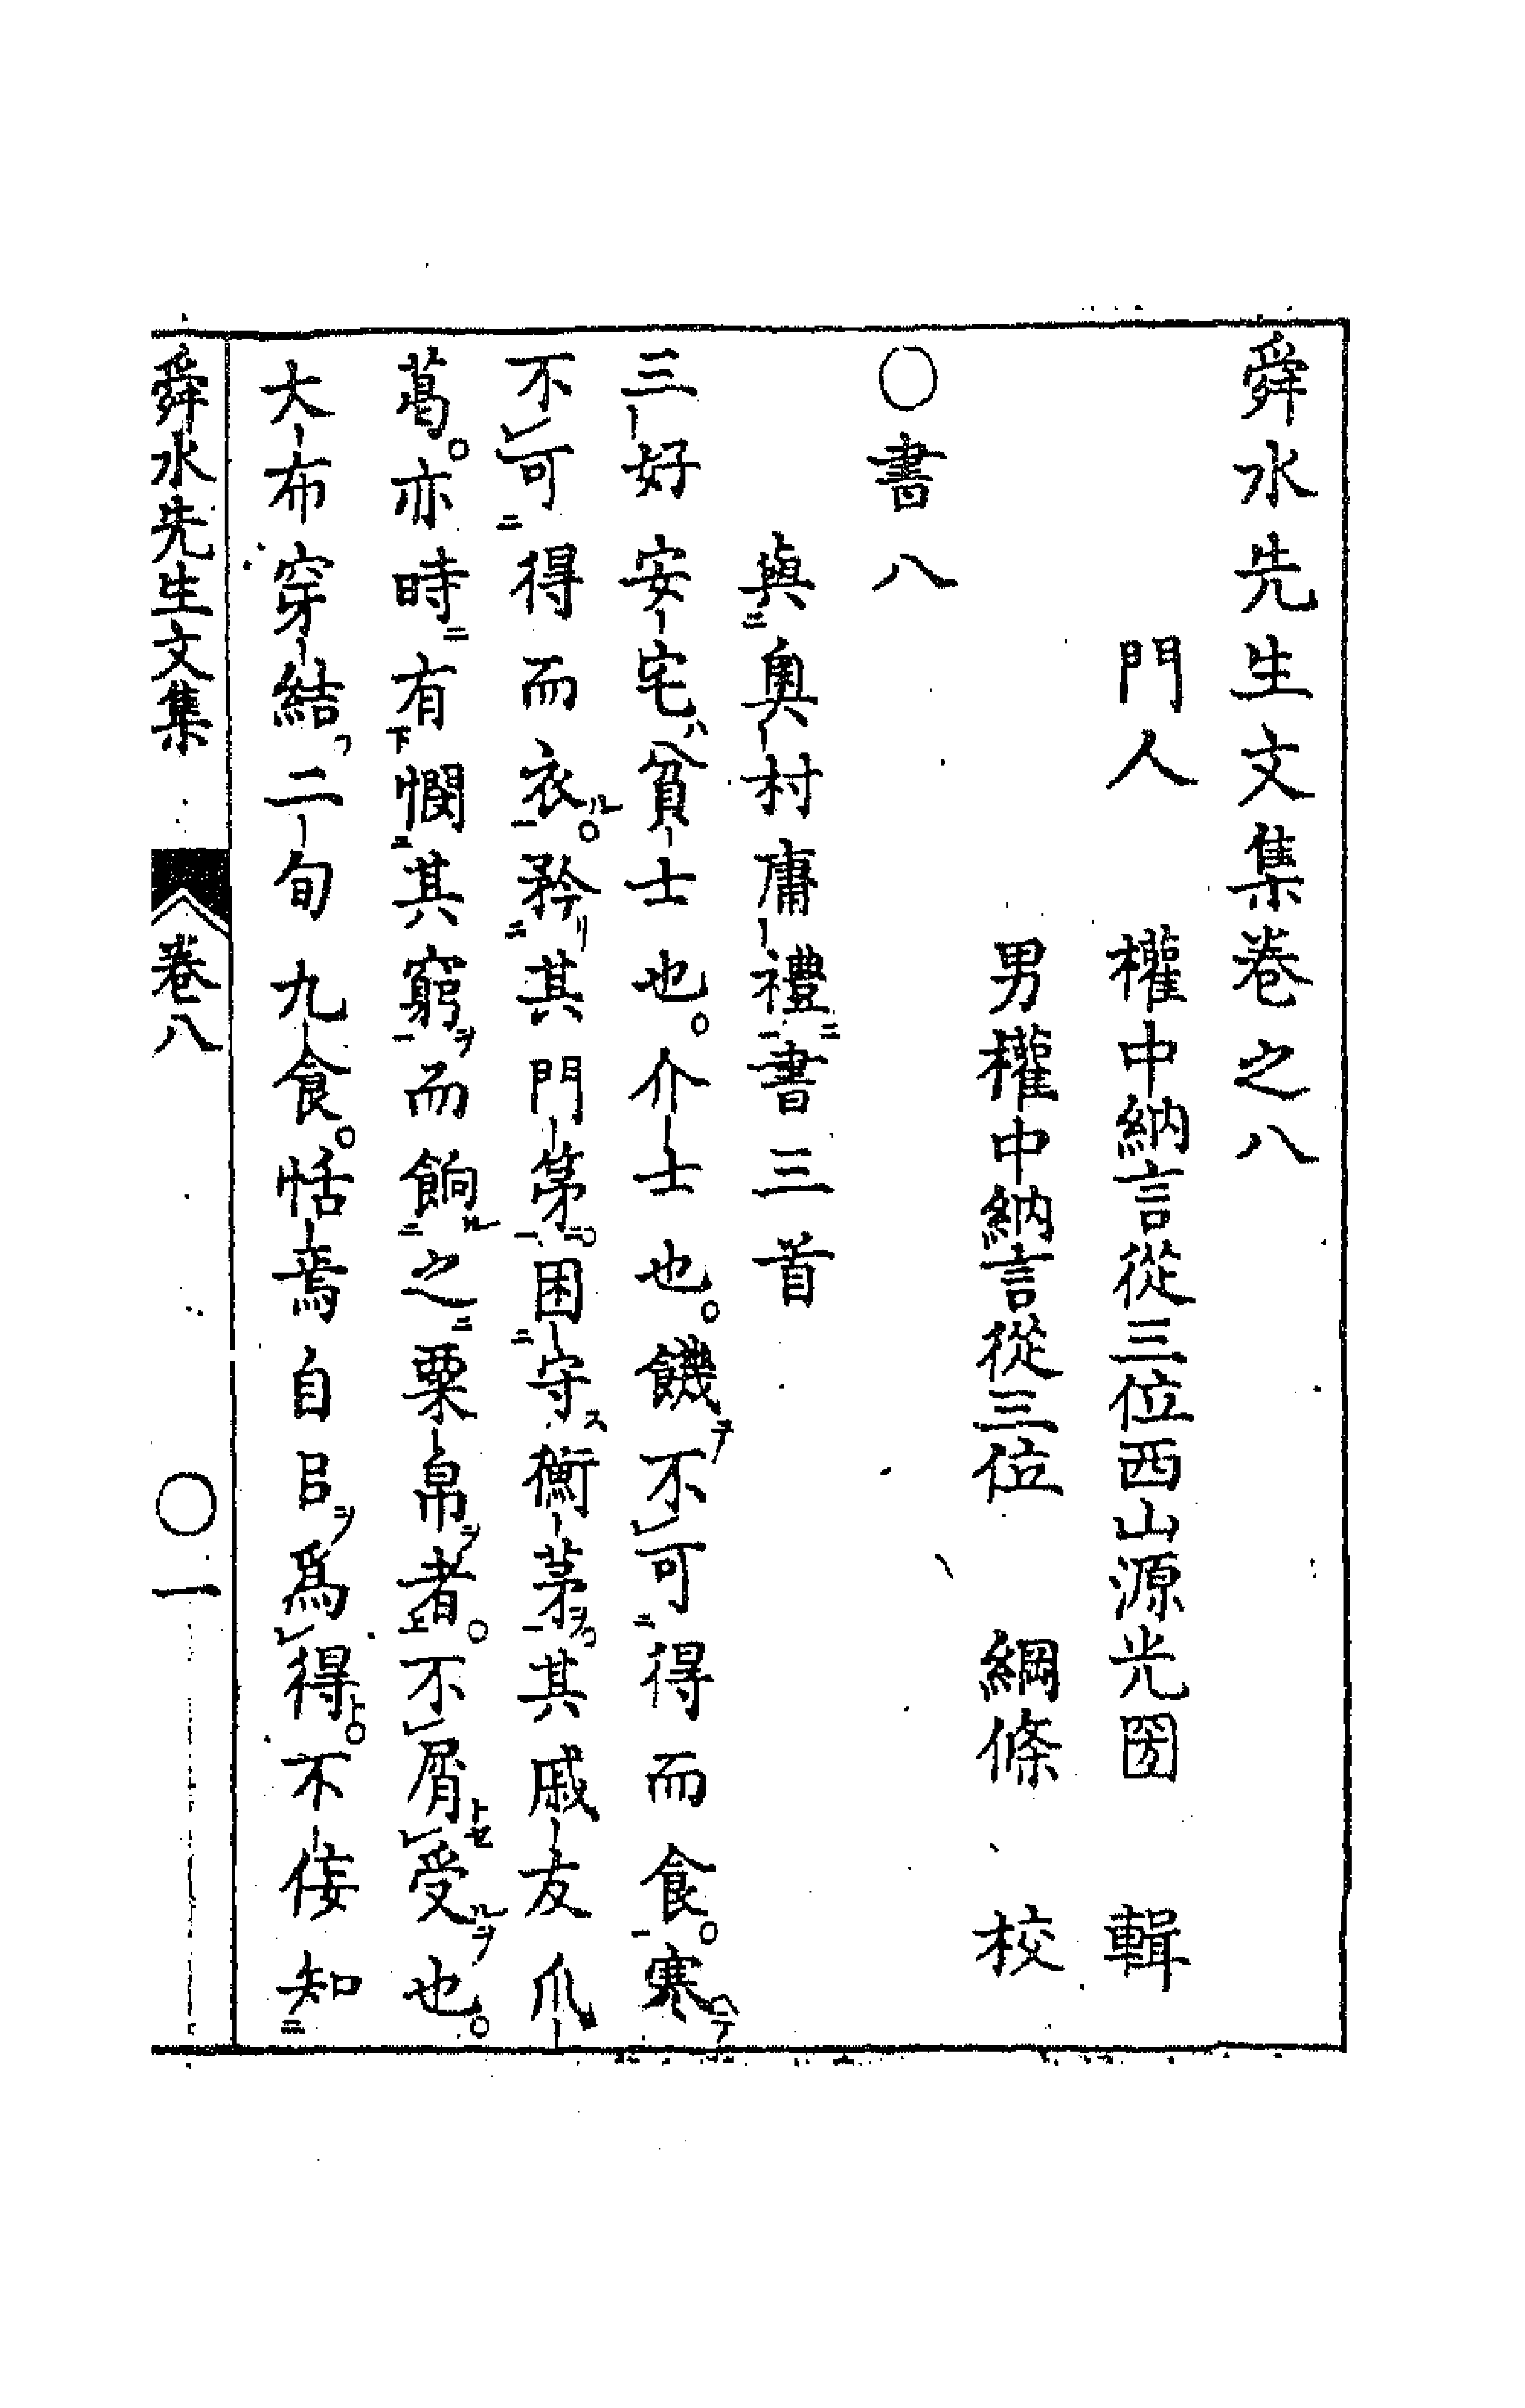 舜水先生文集卷之八
門人 權中納言從三位西山源光圀 輯
男權中納言從三位 綱條 校
○書八
與奧村庸禮書三首
三好安宅貧士也。介士也。饑不可得而食。寒
不可得而衣。矜其門第。困守衡茅。其戚友瓜
葛。亦時有憫其窮而餉之粟帛者。不屑受也。
大布穿結二旬九食。恬焉自㠯爲得。不佞知
舜水先生文集 卷八 ○一